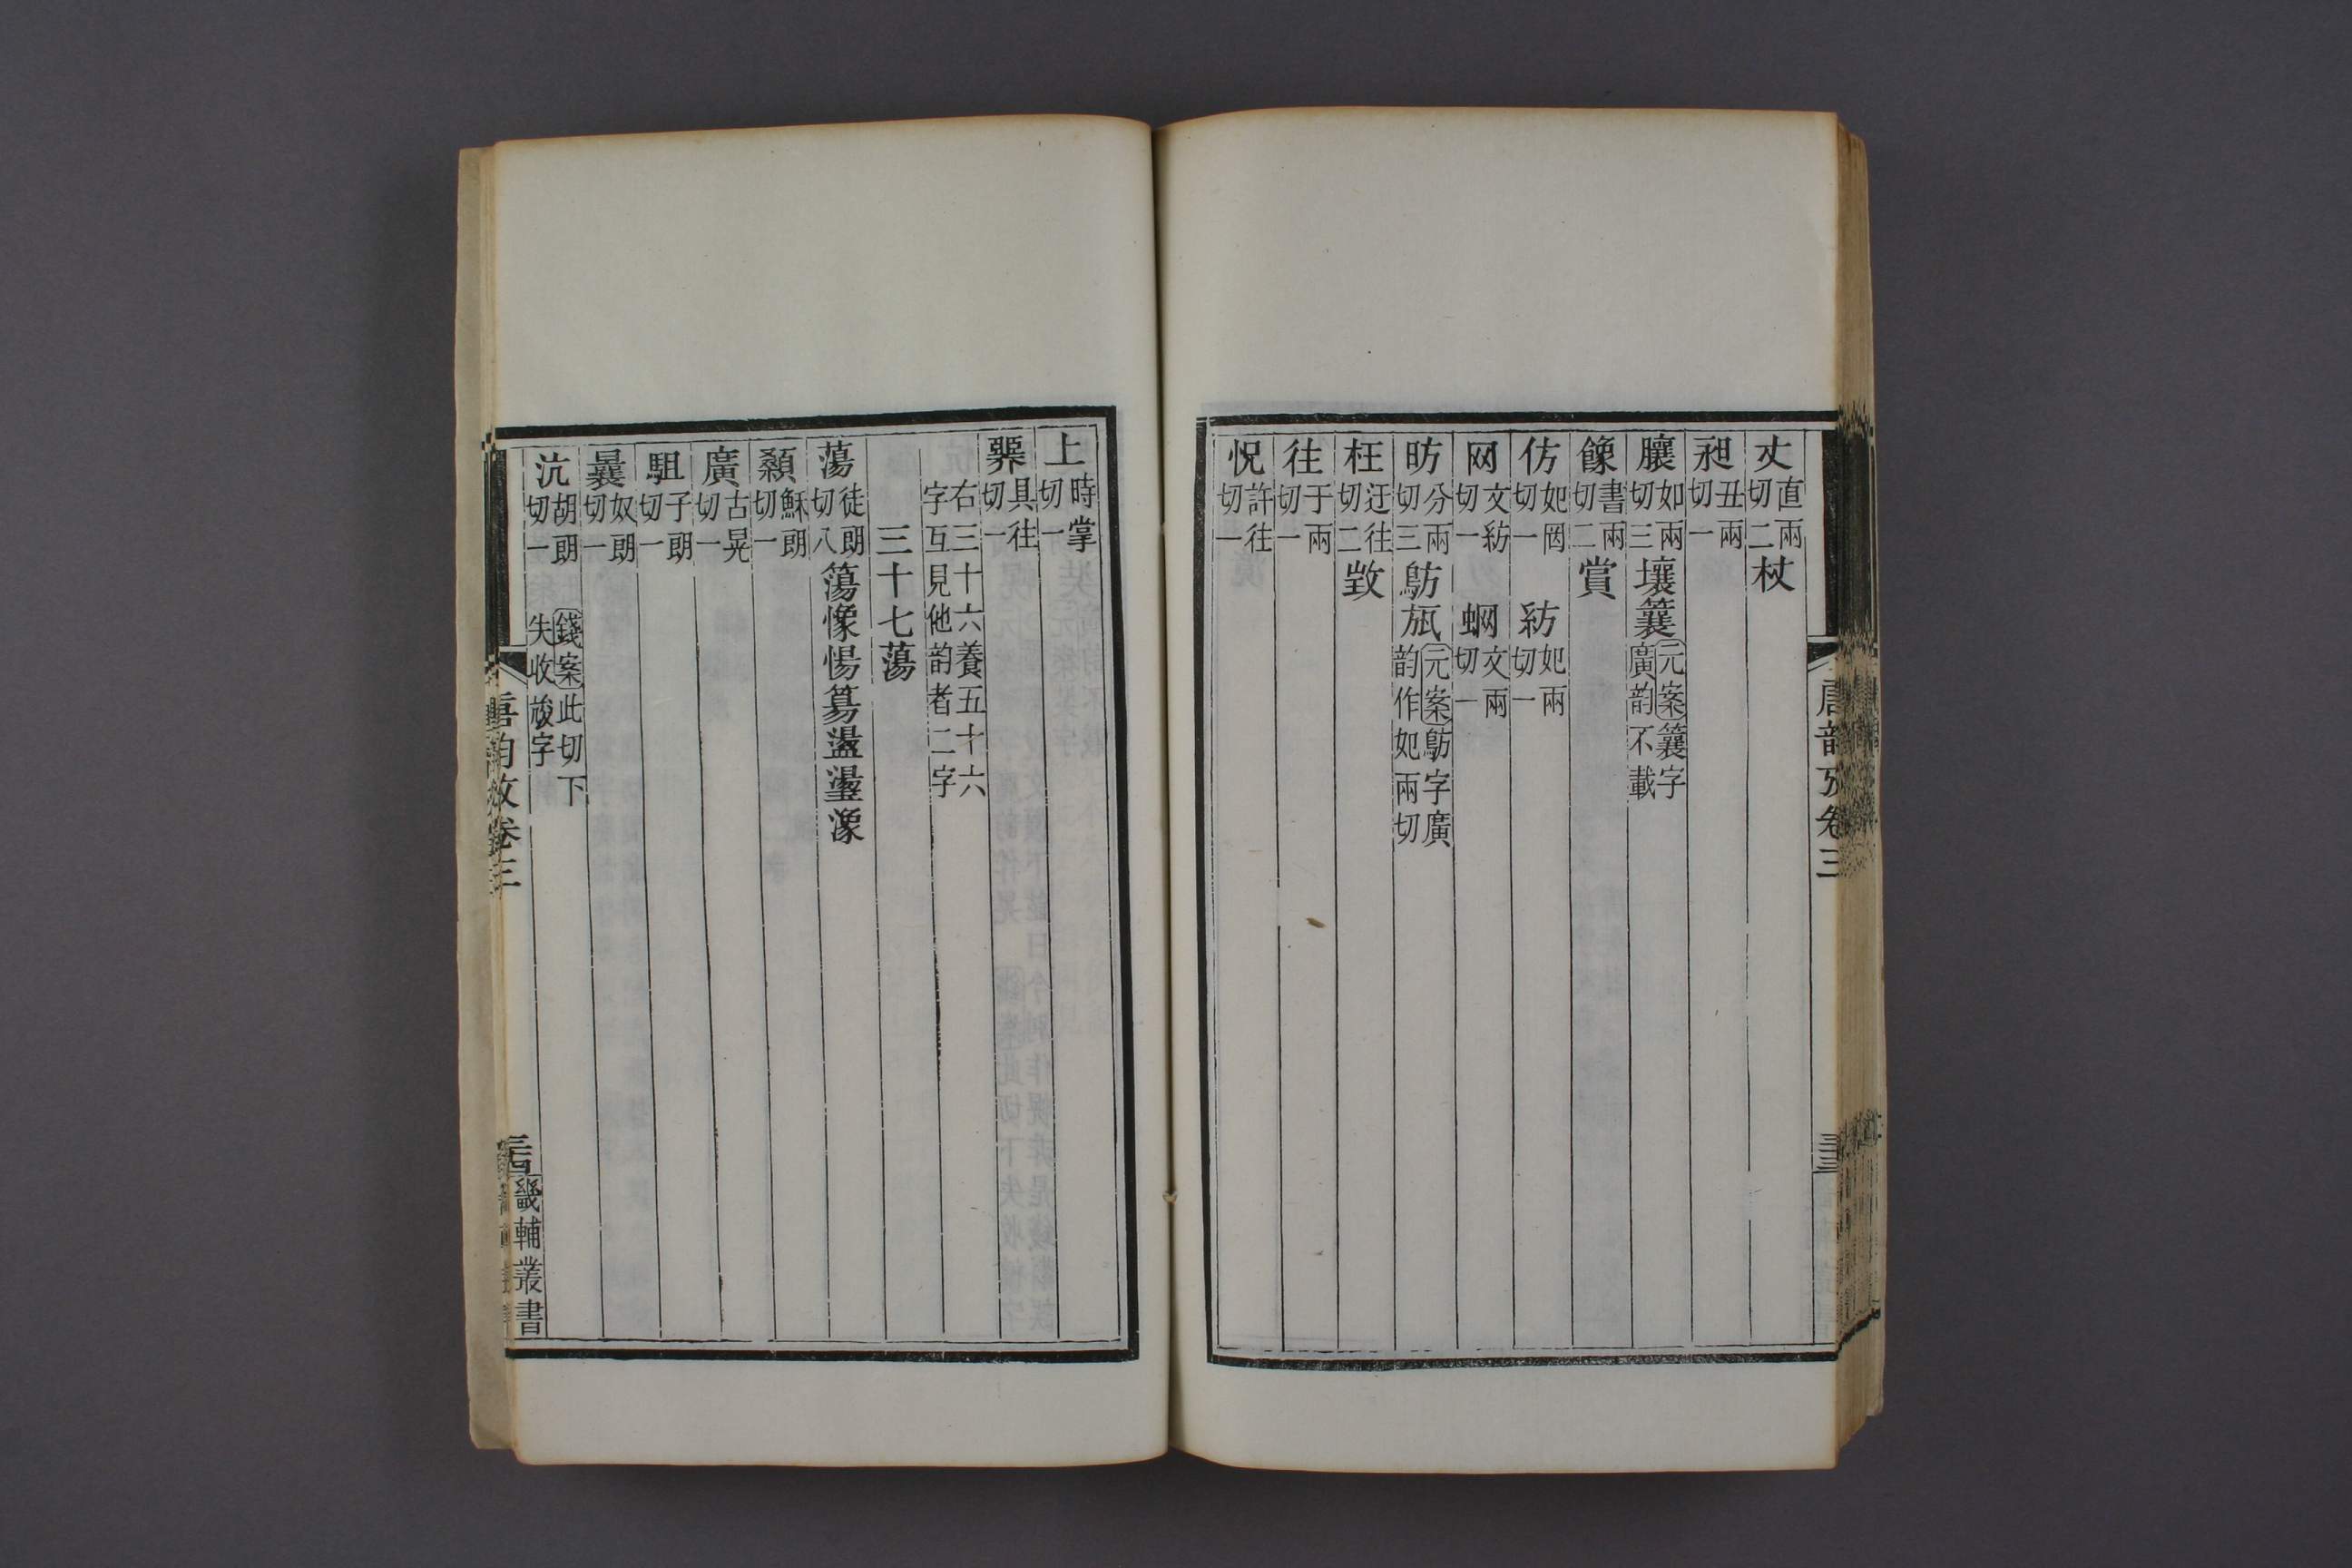 唐韵攷卷三
丈直兩切二杖
昶丑兩切一
釀如兩切三壤蘘元案蘘字廣韵不載
饟書兩切二賞
仿妃罔切一 紡妃兩切一
网文紡切一 蛧文兩切一
昉分兩切三鴋瓬元案鴋字廣韵作妃兩切
枉迋往切二𢼎
往于兩切一
怳許往切一
上時掌切一
具往切一
右三十六養五十六字互見他韵者二字
三十七蕩
蕩徒朗切八簜惕簜盪璗潒
顙穌朗切一
廣古晃切一
駔子朗切一
曩奴朗切一
沆胡朗切一 錢案此切下失收䟘字
唐韵攷卷三
畿輔叢書